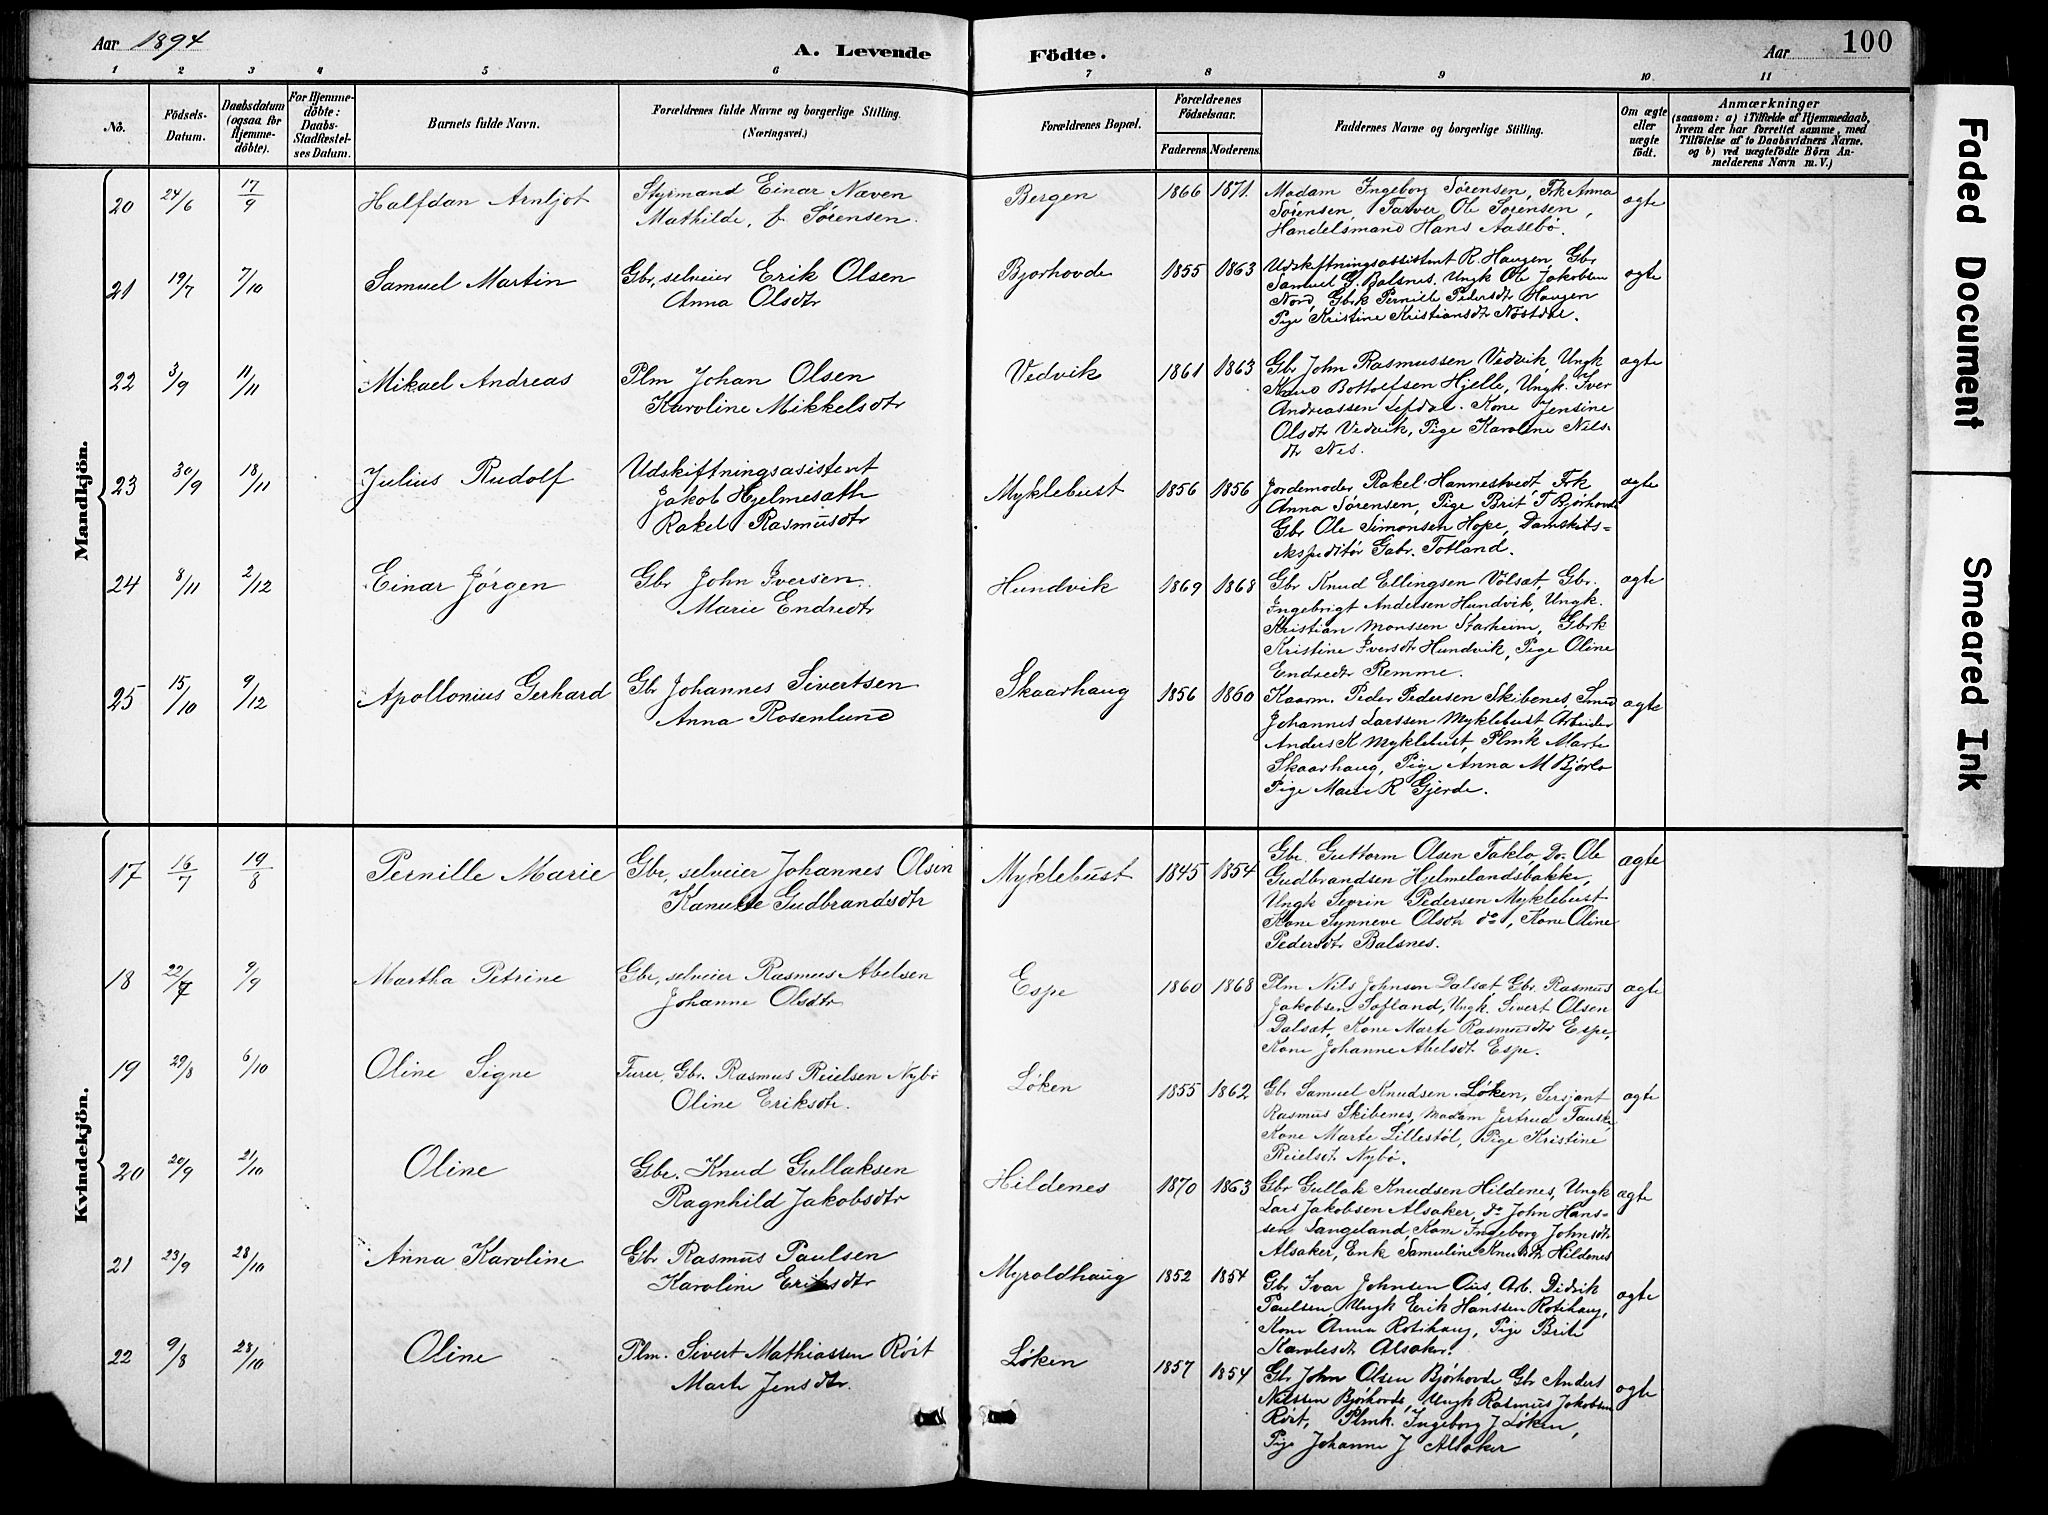 Aar 1894
A. Levende Födte.
Aar
100
1 2 3 4 5 6 7 8 9 10 11
No.
Födsels-Datum.
Daabsdatum (ogsaa for Hjemme-döbte).
For Hjemme-döbte: Daabs-Stadfæstel-ses Datum.
Barnets fulde Navn.
Forældrenes fulde Navne og borgerlige Stilling. (Næringsvei.)
Forældrenes Bopæl.
Forældrenes Födselsaar.
Faderens Moderens.
Faddernes Navne og borgerlige Stilling.
Om ægte eller uægte födt.
Anmærkninger
(saasom: a) i Tilfælde af Hjemmedaab, hvem der har forrettet samme, med Tilföielse af to Daabsvidners Navne. og b) ved uægtefödte Börn An-melderens Navn m. V.)
Mandkjön.
20 24/6 17/9 Halfdan Arnljot
Styrmand Einar Næven
Mathilde, f. Sørensen
Bergen 1866 1871.
Madam Ingeborg Sørensen, Frk Anna
Sørensen, Farver Ole Sørensen,
Handelsmand Hans Aasebø.
ægte
21 19/7 7/10 Samuel Martin
Gbr, selveier Erik Olsen
Anna Olsdtr
Bjorhovde 1855 1863
Udskiftningsassistent R Haugen, Gbr
Samuel G. Balsnes, Ungk Ole Jakobsen
Nord, Gbrk Pernille Pedersdtr Haugen
Pige Kristine Kristiansdtr Nøstdal.
ægte
22 3/9 11/11 Mikael Andreas
Plm Johan Olsen
Karoline Mikkelsdtr
Vedvik 1861 1863
Gbr John Rasmussen Vedvik, Ungk
Knud Bottolfsen Hjelle, Ungk. Iver
Andreassen Lefdal. Kone Jensine
Olsdtr Vedvik, Pige Karoline Nils-
dtr Nes.
ægte
23 30/9 18/11 Julius Rudolf
Udskiftningsasistent
Jakob Hjelmesæth
Rakel Rasmusdtr
Myklebust 1856 1856
Jordemoder Rakel Hannestvedt Frk
Anna Sørensen, Pige Brit T Bjørhovde
Gbr Ole Simonsen Hope, Damskibs-
ekspeditør Gabr. Totland.
ægte
24 8/11 2/12 Einar Jørgen
Gbr John Iversen
Marie Endredtr
Hundvik 1869 1868
Gbr Knud Ellingsen Vølsæt, Gbr.
Ingebrigt Andersen Hundvik, Ungk.
Kristian Monssen Starheim, Gbrk
Kristine Iversdtr Hundvik, Pige Oline
Endredtr Remme.
ægte
25 15/10 9/12 Apollonius Gerhard
Gbr Johannes Sivertsen
Anna Rosenlund
Skaarhaug 1856 1860
Kaarm. Peder Pedersen Skibenes, Smed
Johannes Larssen Myklebust Arbeider
Anders K Myklebust, Plmk Marte
Skaarhaug, Pige Anna M Bjørlo
Pige Marie R Gjerde.
ægte
Kvindekjön.
17 16/7 19/8 Pernille Marie
Gbr, selveier Johannes Olsen
Kanutte Gudbrandsdtr
Myklebust 1845 1854
Gbr. Guttorm Olsen Taklo, Do Ole
Gudbrandsen Hjelmelandsbakke,
Ungk Sevrin Pedersen Myklebust
Kone Synneve Olsdtr do, Kone Oline
Pedersdtr Balsnes.
ægte
18 22/7 9/9 Martha Petrine
Gbr, selveier Rasmus Abelsen
Johanne Olsdtr
Espe 1860 1868
Plm Nils Johnsen Dalsæt Gbr. Rasmus
Jakobsen Sofland, Ungk. Sivert Olsen
Dalsæt, Kone Marte Rasmusdtr Espe,
Kone Johanne Abelsdtr Espe.
ægte
19 29/8 6/10 Oline Signe
Furer, Gbr. Rasmus Reielsen Nybø
Oline Eriksdtr.
Løken 1855 1862
Gbr Samuel Knudsen Løken, Sersjant
Rasmus Skibenes, Madam Jertrud Tauske
Kone Marte Lillestøl, Pige Kristine
Reielsdtr Nybø.
ægte
20 20/9 21/10 Oline
Gbr. Knud Gullaksen
Ragnhild Jakobsdtr
Hildenes 1870 1863
Gbr Gullak Knudsen Hildenes, Ungk
Lars Jakobsen Alsaker, do John Hans-
sen Langeland, Kone Ingeborg Johnsdtr
Alsaker, Enk Samuline Knudsdtr Hildenes
ægte
21 23/9 28/10 Anna Karoline
Gbr Rasmus Paulsen
Karoline Eriksdtr
Myroldhaug 1852 1854
Gbr Ivar Johnsen Ous, Arb. Didrik
Paulsen, Ungk Erik Hanssen Rotihaug,
Kone Anna Rotihaug, Pige Brite
Karolesdtr Alsaker.
ægte
22 9/8 28/10 Oline
Plm. Sivert Mathiassen Røit
Marte Jensdtr.
Løken 1857 1854
Gbr John Olsen Bjørhovde Gbr Anders
Nilssen Bjørhovde, Ungk Rasmus Jakobsen
Røit, Plmk. Ingeborg J Løken,
Pige Johanne J Alsaker
ægte
Faded Document
Smeared Ink